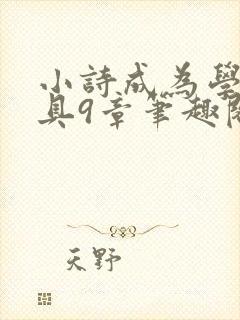 小詩成為學
具9章筆趣閱
天野